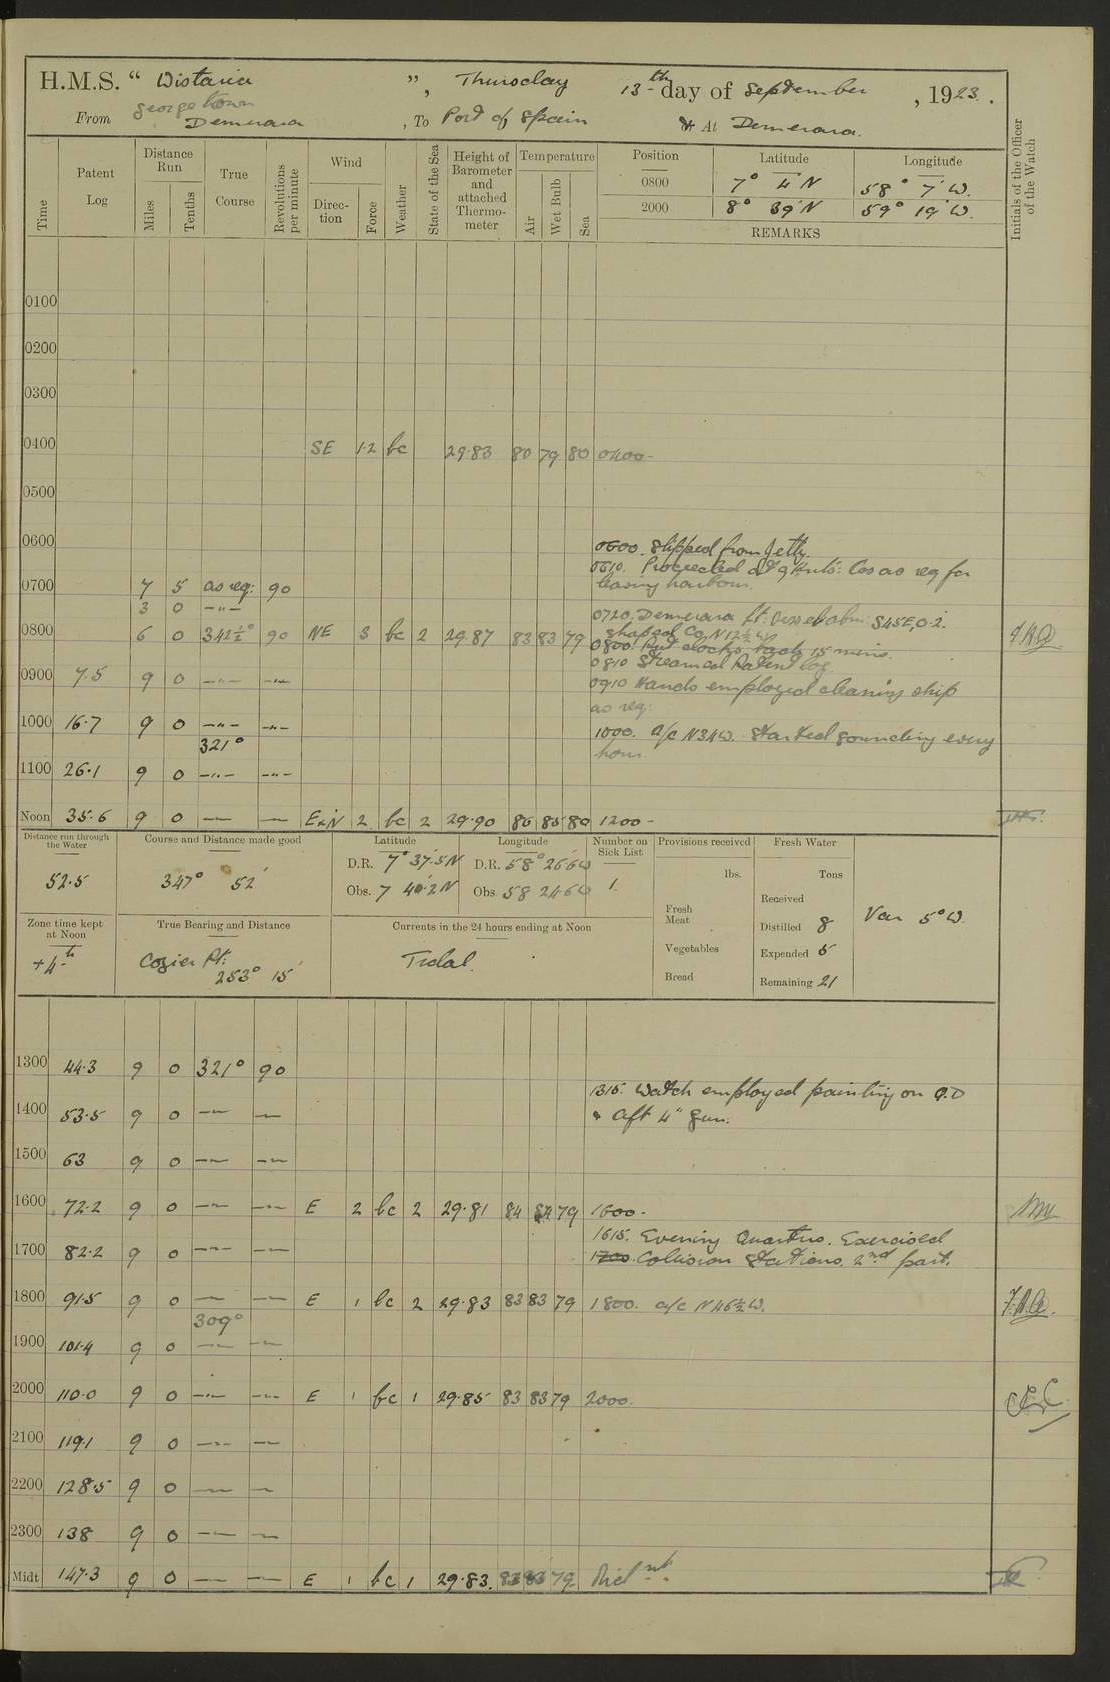 H.M.S. “ Wistaria ”, Thursday 13th day of September, 1923.
From Georgetown Demerara, To Port of Spain & At Demerara.
Time
Patent Log
Distance Run
Miles
Tenths
True Course
Revolutions per minute
Wind
Direction
Force
Weather
State of the Sea
Height of Barometer and attached Thermometer
Temperature
Air
Wet Bulb
Sea
Position Latitude Longitude
0800 7° 4' N 58° 7' W.
2000 8° 39' N 59° 19' W.
REMARKS
Initials of the Officer of the Watch
0100
0200
0300
0400 SE 1·2 bc 29·83 80 79 80 0400-
0500
0600
0600. Slipped from Jetty.
0610. Proceeded at 9 Knts: Cos as req for
leaving harbour.
0700 7 5 as req: 90
3 0 —"—
0720. Demerara Lt: Vessel abm: S45E, 0·2.
shaped Co. N12½W
0800 6 0 342½° 90 NE 3 bc 2 29·87 83 83 79 0800. Put clocks back 15 mins.
0810 Streamed Patent log
0900 7.5 9 0 —"— —"— 0910 Hands employed cleaning ship
as req:
1000 16·7 9 0 —"— —"— 1000. a/c N34W. Started sounding every
321° hour
1100 26·1 9 0 —"— —"—
Noon 35·6 9 0 — — ExN 2 bc 2 29·90 86 85 80 1200 -
Distance run through the Water
52·5
Course and Distance made good
347° 52'
Latitude
D.R. 7° 37·5 N
Obs. 7 40·2 N
Longitude
D.R. 58° 26·6 W
Obs. 58 24·6 W
Number on Sick List
1.
Provisions received
lbs.
Fresh Meat
Vegetables
Bread
Fresh Water
Tons
Received
Distilled 8
Expended 5
Remaining 21
Var 5° W.
Zone time kept at Noon
+4-h
True Bearing and Distance
Cozier Pt:
253° 15'
Currents in the 24 hours ending at Noon
Tidal.
1300 44·3 9 0 321° 90
1315. Watch employed painting on Q.D
1400 53·5 9 0 —"— — & Aft 4" gun.
1500 63 9 0 —"— —"—
1600 72·2 9 0 —"— —"— E 2 bc 2 29·81 84 84 79 1600-
1615. Evening Quarters. Exercised
1700 82·2 9 0 —"— —"— 1700. Collision Stations. 2nd part.
1800 91·5 9 0 — —"— E 1 bc 2 29·83 83 83 79 1800. a/c N46½W.
309°
1900 101·4 9 0 —"— —"—
2000 110·0 9 0 —"— —"— E 1 bc 1 29·85 83 83 79 2000.
2100 119·1 9 0 —"— —"—
2200 128·5 9 0 — —
2300 138 9 0 —"— —
Midt 147·3 9 0 — — E 1 bc 1 29·83. 83 83 79 Midnt.